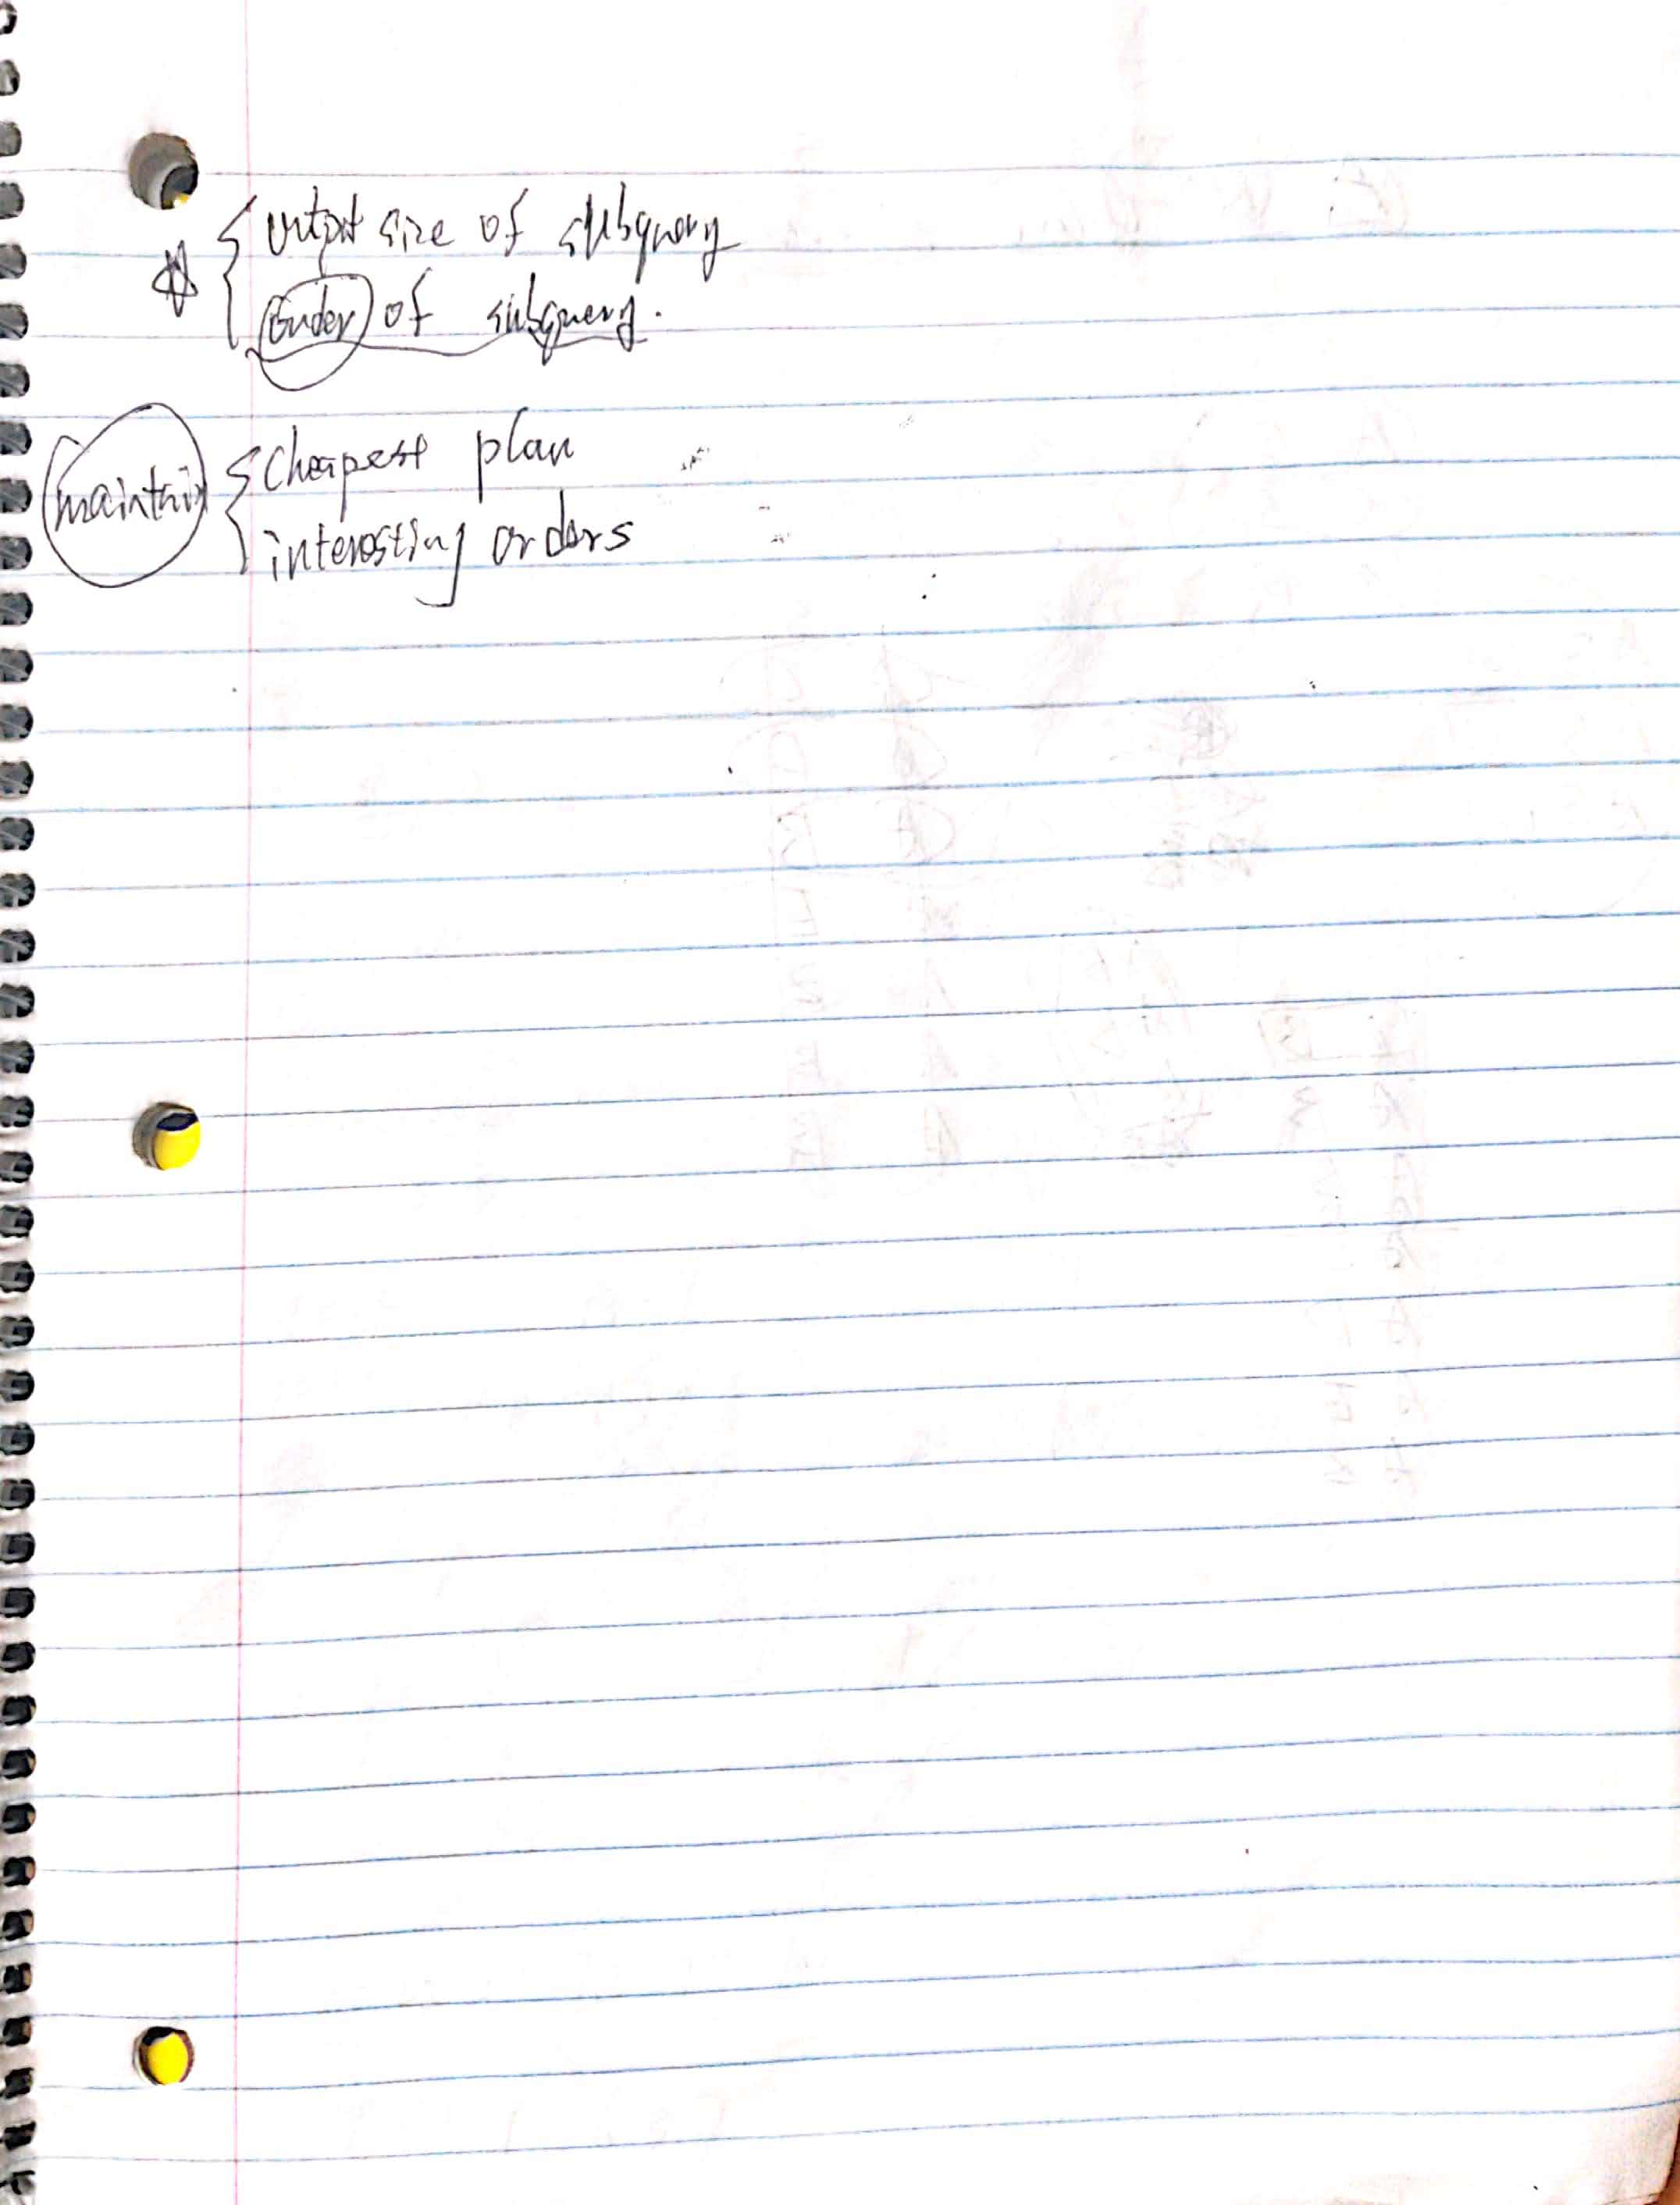 ☆ { output size of subquery
order of subquery.
maintain { cheapest plan
interesting orders